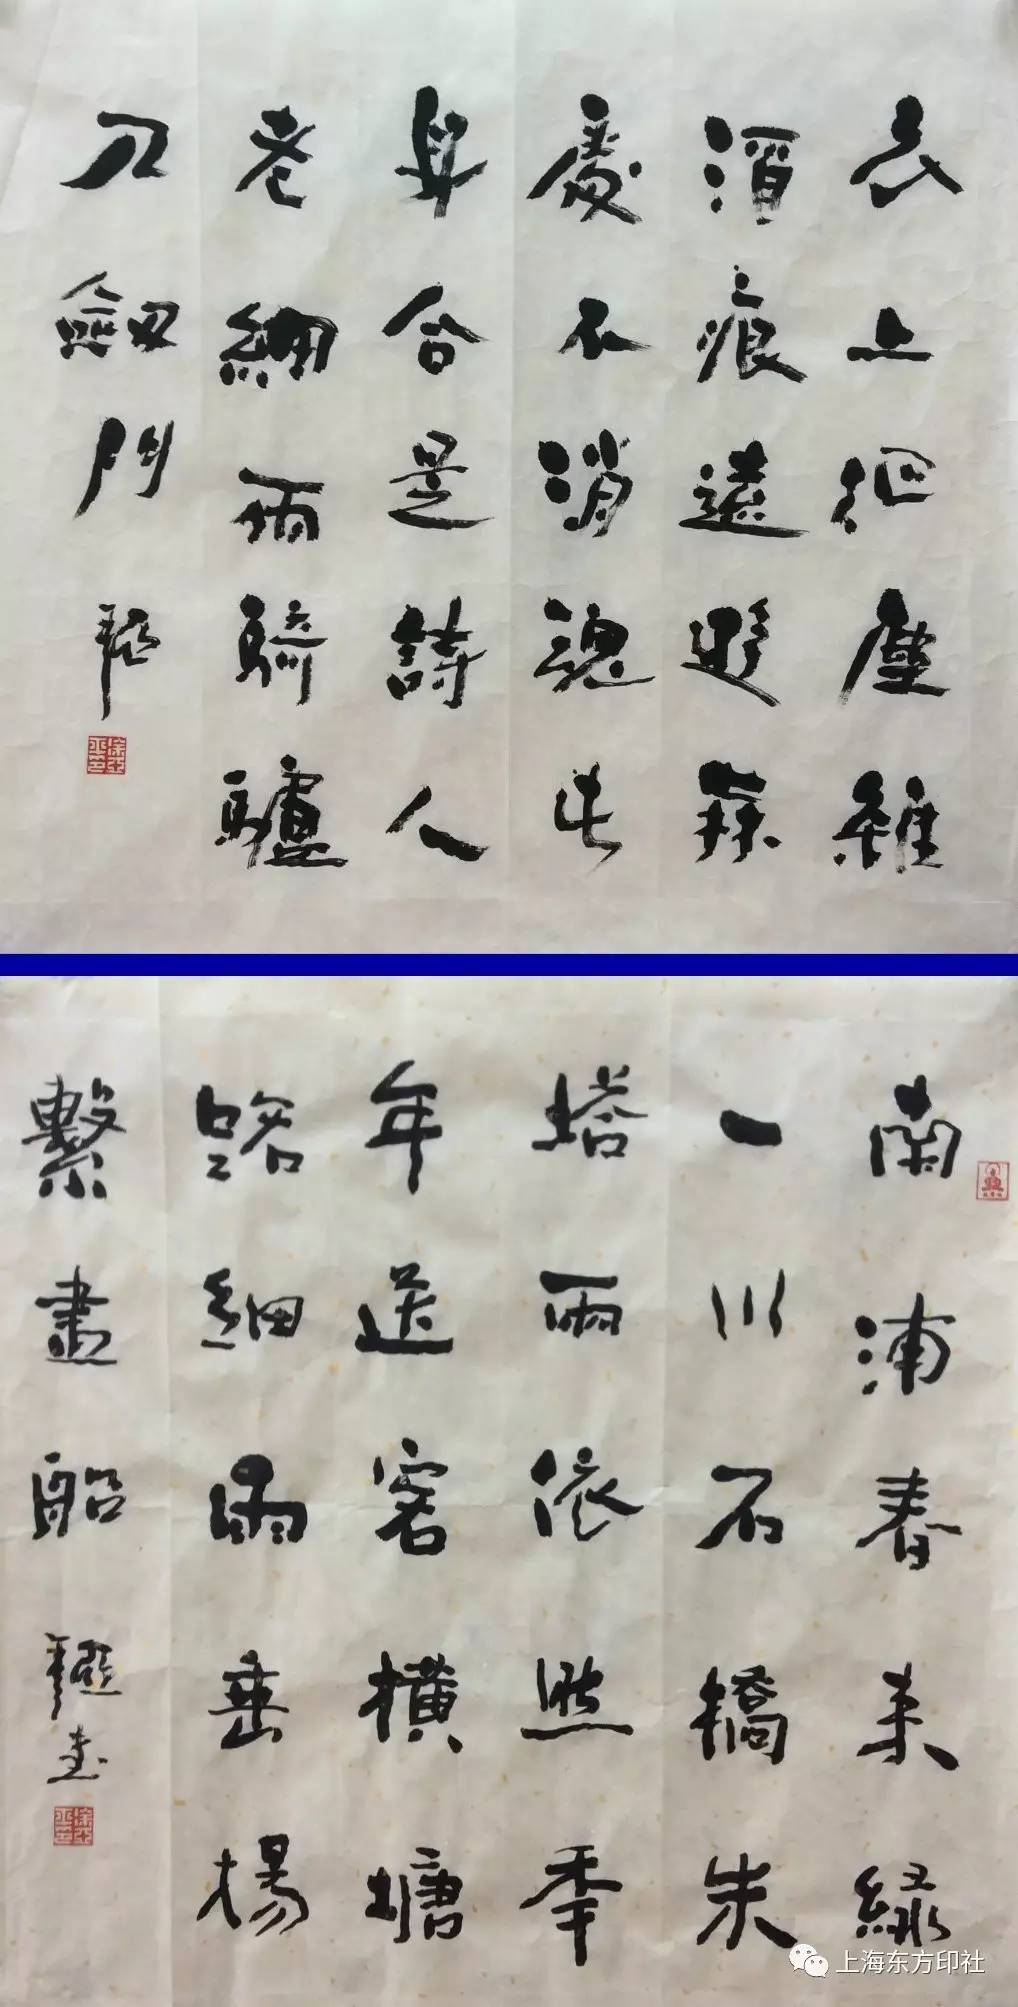 衣上征塵雜
酒痕遠遊無
處不消魂此
身合是詩人
老細雨騎驢
入劍門
南浦春來綠
一川石橋朱
塔兩依然年
年送客橫塘
路細雨垂楊
繫畫船
上海东方印社